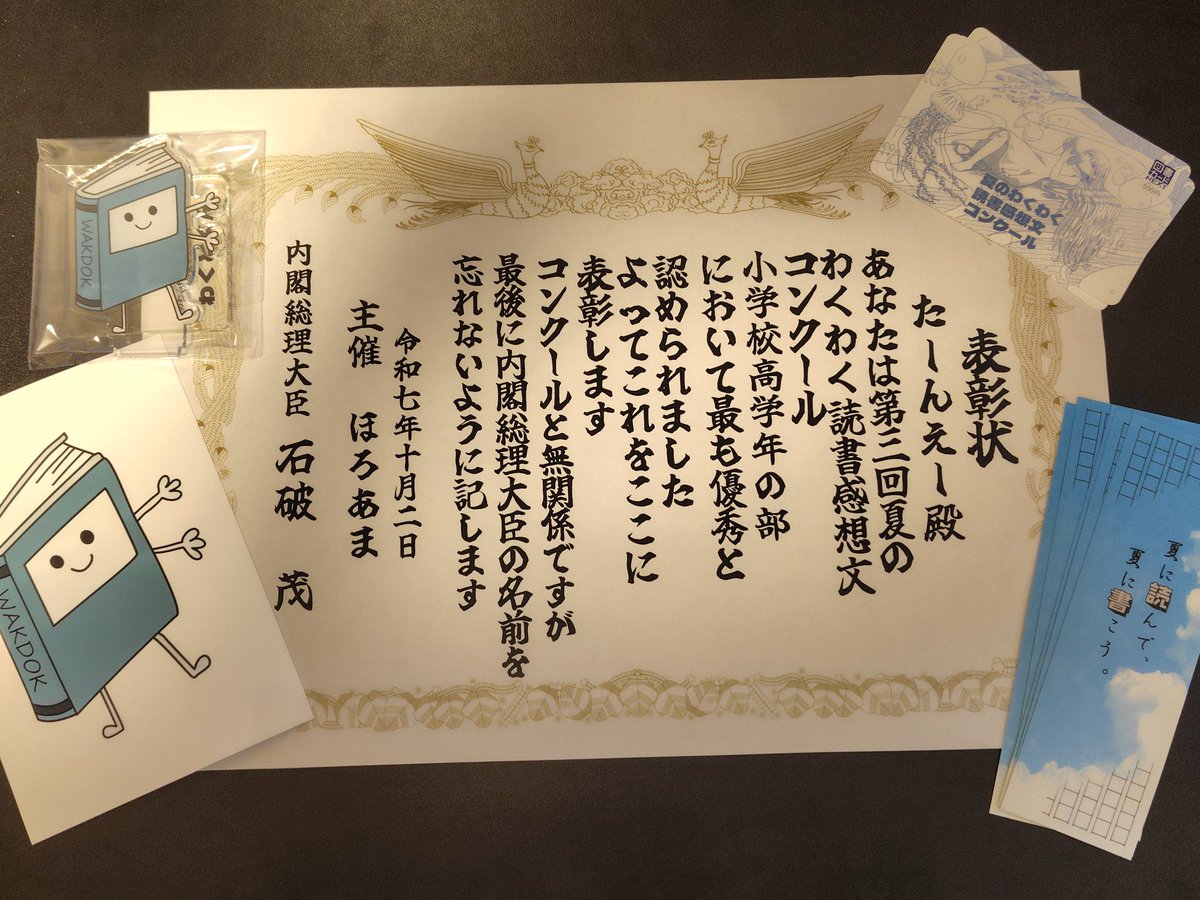 表彰状
たーんえー殿
あなたは第三回夏の
わくわく読書感想文
コンクール
小学校高学年の部
において最も優秀と
認められました
よってこれをここに
表彰します
コンクールと無関係ですが
最後に内閣総理大臣の名前を
忘れないように記します
令和七年十月二日
主催 ほろあま
内閣総理大臣 石破 茂
WAKDOK
WAKDOK
夏のわくわく
読書感想文
コンクール
500円
夏に読んで、
夏に書こう。